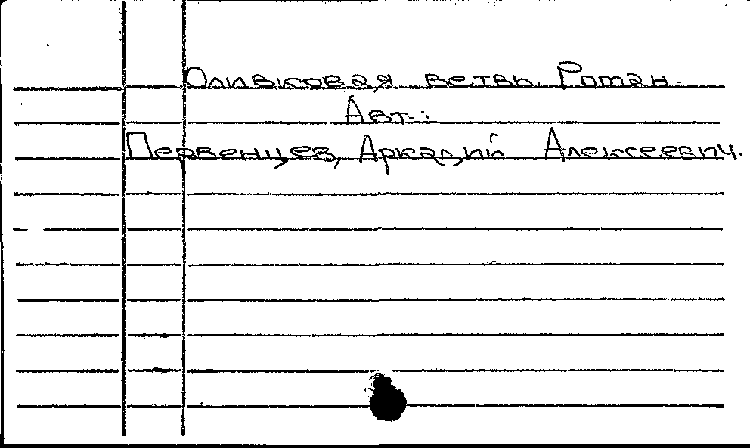 Оливковая ветвь. Роман.
Авт.:
Первенцев, Аркадий Алексеевич.